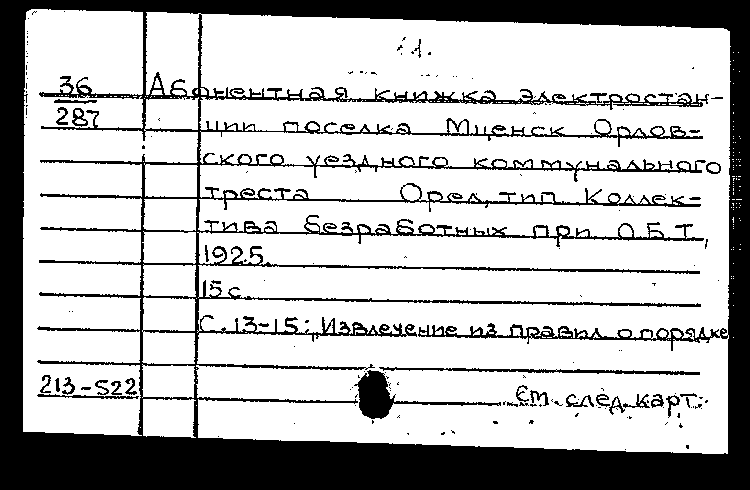 11.
36 Абонентная книжка электростан-
287 ции поселка Мценск Орлов-
ского уездного коммунального
треста Орел, тип. Коллек-
тива безработных при О.Б.Т,
1925.
15 с.
С. 13-15: „Извлечение из правил о порядке
213-522 См. след. карт.